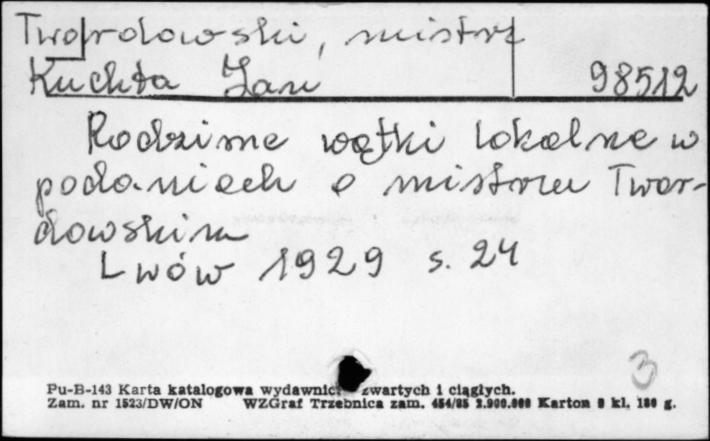 Twardowski, mistrz
Kuchta Jan 98512
Rodzime wątki lokalne w
podaniach o mistrzu Twar-
dowskim
Lwów 1929 s. 24
3
Pu-B-143 Karta katalogowa wydawnict zwartych i ciągłych.
Zam. nr 1523/DW/ON WZGraf Trzebnica zam. 454/85 2.900.000 Karton 8 kl. 180 g.